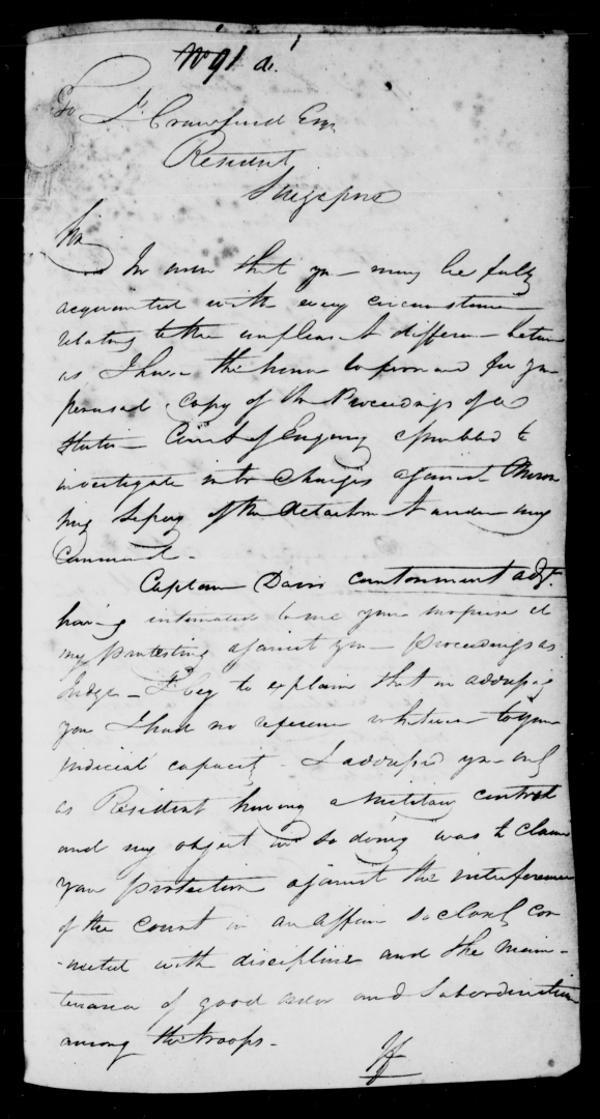 No 91 A.
To J. Crawfurd Esqr
Resident
Singapore
Sir
In order that you may be fully
acquainted with every circumstance
relating to the unpleasant difference between
us I have the honor to forward for your
perusal copy of the Proceedings of a
Station Court of Enquiry assembled to
investigate into charges against
Sepoy of the Detachment under my
Command.
Captain Davis Cantonment Adjt.
having intimated to me your surprise at
my protesting against your proceedings as
Judge – I beg to explain that in addressing
you I had no reference whatever to your
judicial capacity – I addressed you only
as Resident having a Military control
and my object in so doing was to claim
your protection against the interference
of the court in an affair so closely con
-nected with discipline and the main-
tenance of good order and Subordination
among the troops.